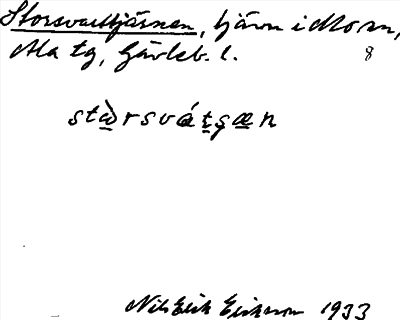 Storsvarttjärnen, tjärn i Mo sn,
Ala tg, Gävleb. l. 8
stɒ̀rsvátʂæn
Nils Erik Erikson 1933